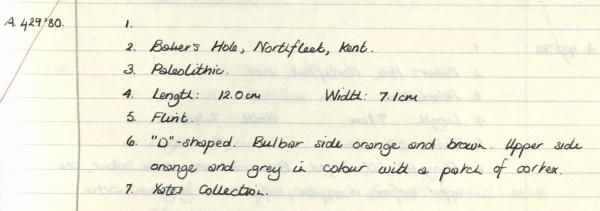 A.429'80. 1.
2. Baker's Hole, Northfleet, Kent.
3. Paleolithic.
4. Length: 12.0cm Width: 7.1cm
5. Flint.
6. "D"-shaped. Bulbar side orange and brown. Upper side
orange and grey in colour with a patch of cortex.
7. Yates Collection.